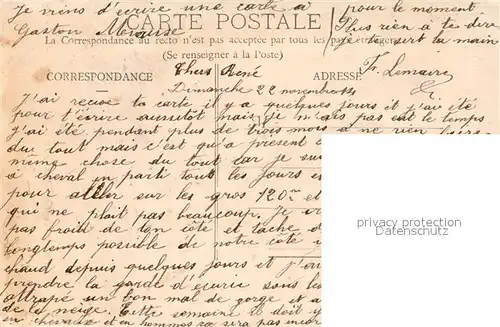 Je viens d'écrire une carte à
Gaston
pour le moment
Plus rien à te dire
je te sert la main
F. Lemaire
CARTE POSTALE
La Correspondance au recto n'est pas acceptée par tous les pays étrangers
(Se renseigner à la Poste)
CORRESPONDANCE
ADRESSE
Chers René
Dimanche 22 novembre
J'ai recuse ta carte il y a quelques jours et j'ai été
pour t'écrire aussitôt mais je n'ai pas eut le temps
j'ai été pendant plus de trois mois a ne rien faire
du tout mais c'est qu'a présent c
même chose du tout car je sui
à cheval en parti tout les jours
pour aller sur les gros 120 et
qui ne plait pas beaucoup. Je
pas froid de ton côté et tache d
longtemps posible de notre côté
chaud depuis quelques jours et j'
prendre la garde d'écurie sous le
attrapé un bon mal de gorge et a
de la neige. Cette semaine il doit y
en chevaux et en hommes sa sera pas
privacy protection
Datenschutz